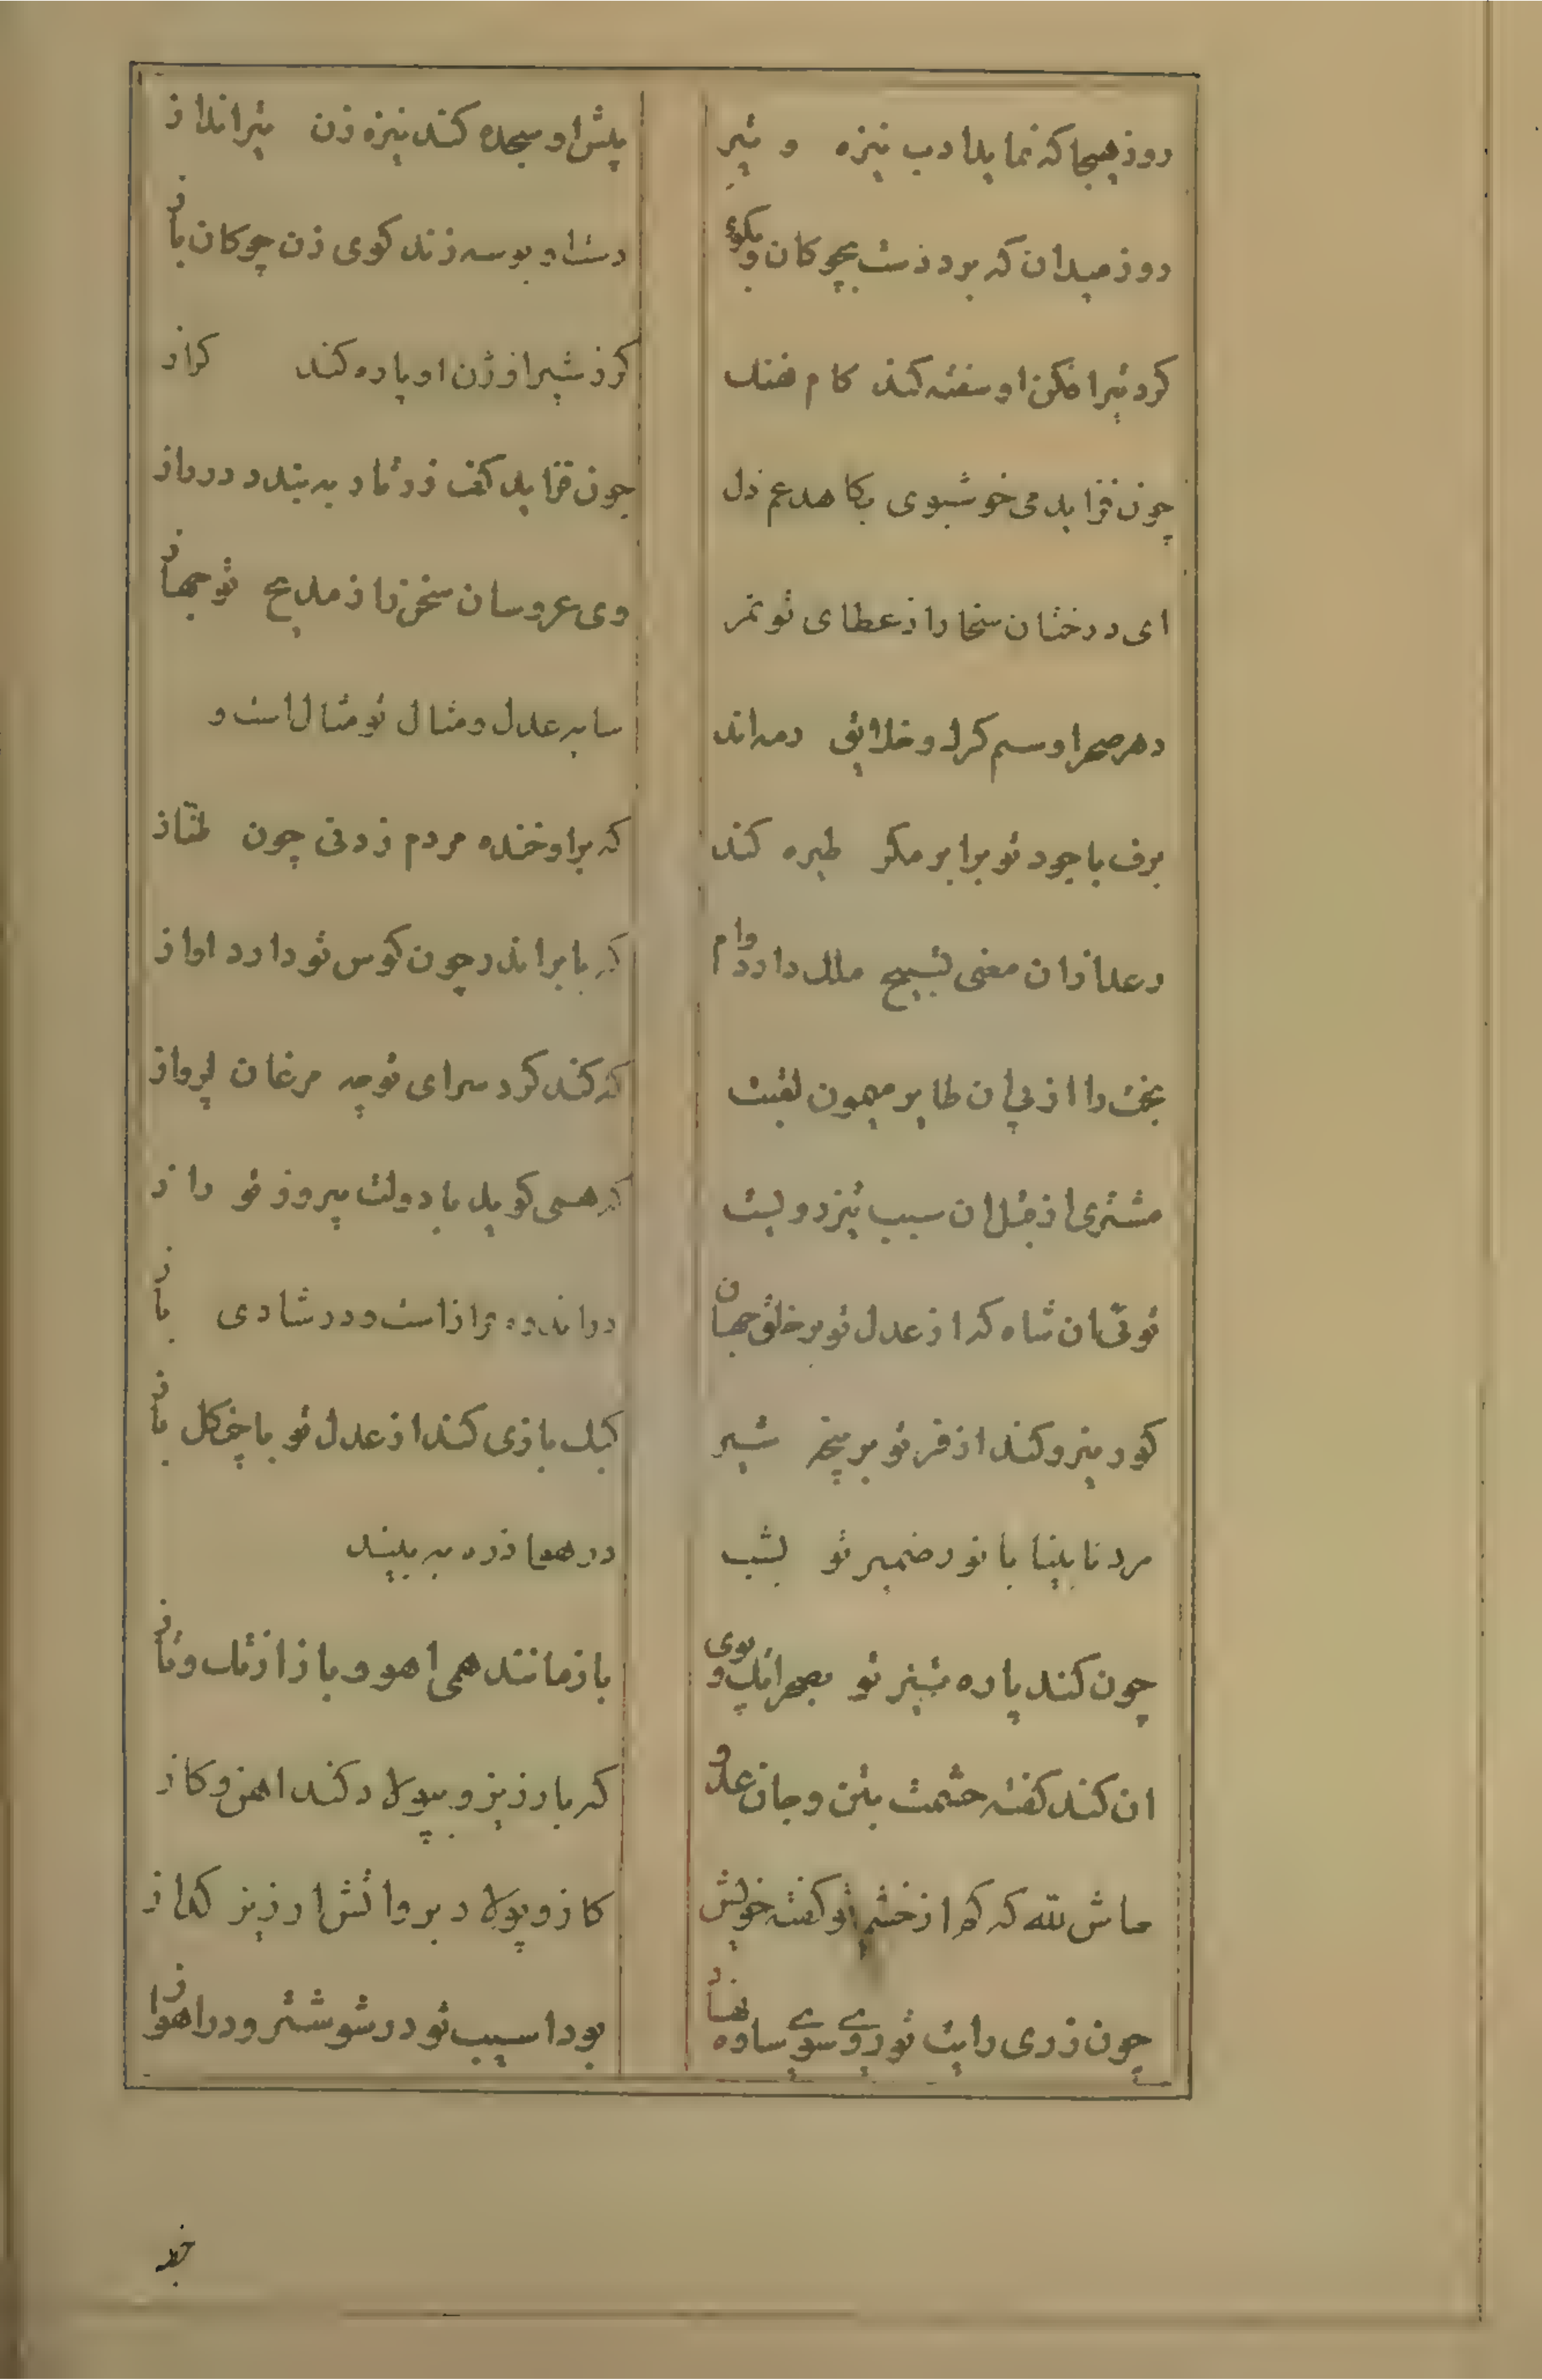 روز هیجا که نماید ادب نیزه و تیر
پیش او سجده کند نیزه زن تیرانداز
روز میدان که برد دست بچوکان و بکوی
دست او بوسه زند کوی زن چوکان باز
کرد تیر افکن او سفته کند کام هنک
کرز شیر اوژن او پاره کند کراز
چون فزاید می خوشبوی بکاهد غم دل
چون فزاید کف زرد به بیند در باز
ای درختان سخا را از عطای تو ثمر
وی عروسان سخن را ز مدیح تو جهاز
دهر صحرا و ستم کرک و خلایق رمه اند
سایه عدل و مثال تو مثال است و
برف با جود تو برابر مکر طیره کند
که براو خنده مردم زدنی چون طناز
رعد از ان معنی تسبیح ملک دارد وام
که بابر اندر چون کوس تو دارد اواز
بخت را از پی ان طایر میمون لقبت
که کند کرد سرای تو چه مرغان پرواز
مشتری از قبل ان سبب نیز دولیت
که همی کوید با دولت پیروز تو راز
توئی ان شاه که از عدل تو بر خلق جهان
در اندوه فراز است و در شادی باز
کور نیرو کند از فر تو بر پنجه شیر
کبک بازی کند از عدل تو با چنکل باز
مرد نابینا با نور ضمیر تو بشب
در هوا ذره به بیند
چون کند پاره تبیر تو بصحرا تک و پوی
باز مانند همی اهو و باز از تک و تاز
ان کند کفته حشمت بتن و جان عدو
که بارزیز و بپولاد کند اهن و کاز
حاش لله که که از خشم تو کفته خویش
کاز و پولاد بر و اتش ارزیز کداز
چون زری رایت تو روی سوی ساوه نهاد
بود اسیب تو در شوشتر و در اهواز